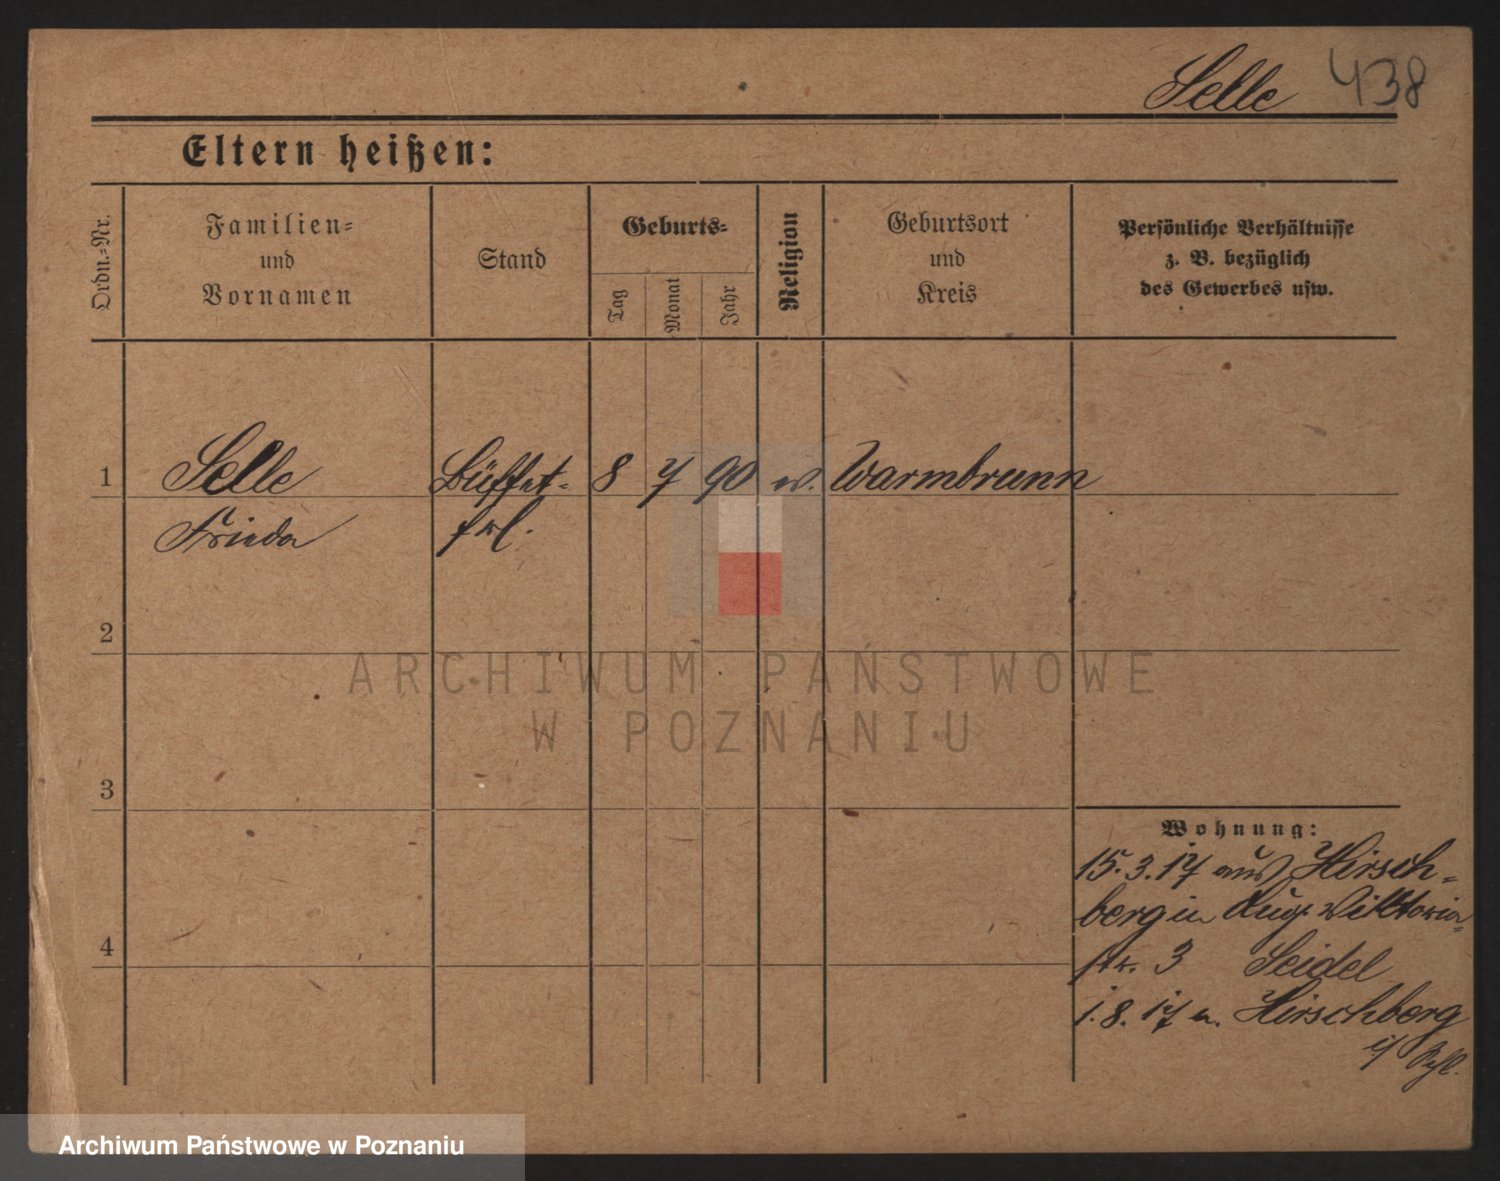 Selle 438
Eltern heißen:
Ordn.-Nr.
Familien-
und
Vornamen
Stand
Geburts-
Tag
Monat
Jahr
Religion
Geburtsort
und
Kreis
Persönliche Verhältnisse
z. B. bezüglich
des Gewerbes usw.
1 Selle Büffet- 8 7 90 ev. Warmbrunn
Frieda frl.
2
3
4
Wohnung:
15.3.17 aus Hirsch-
berg in Aug. Viktoria-
str. 3 Seidel
1.8.17 n. Hirschberg
i/ Schl.
ARCHIWUM PAŃSTWOWE
W POZNANIU
Archiwum Państwowe w Poznaniu